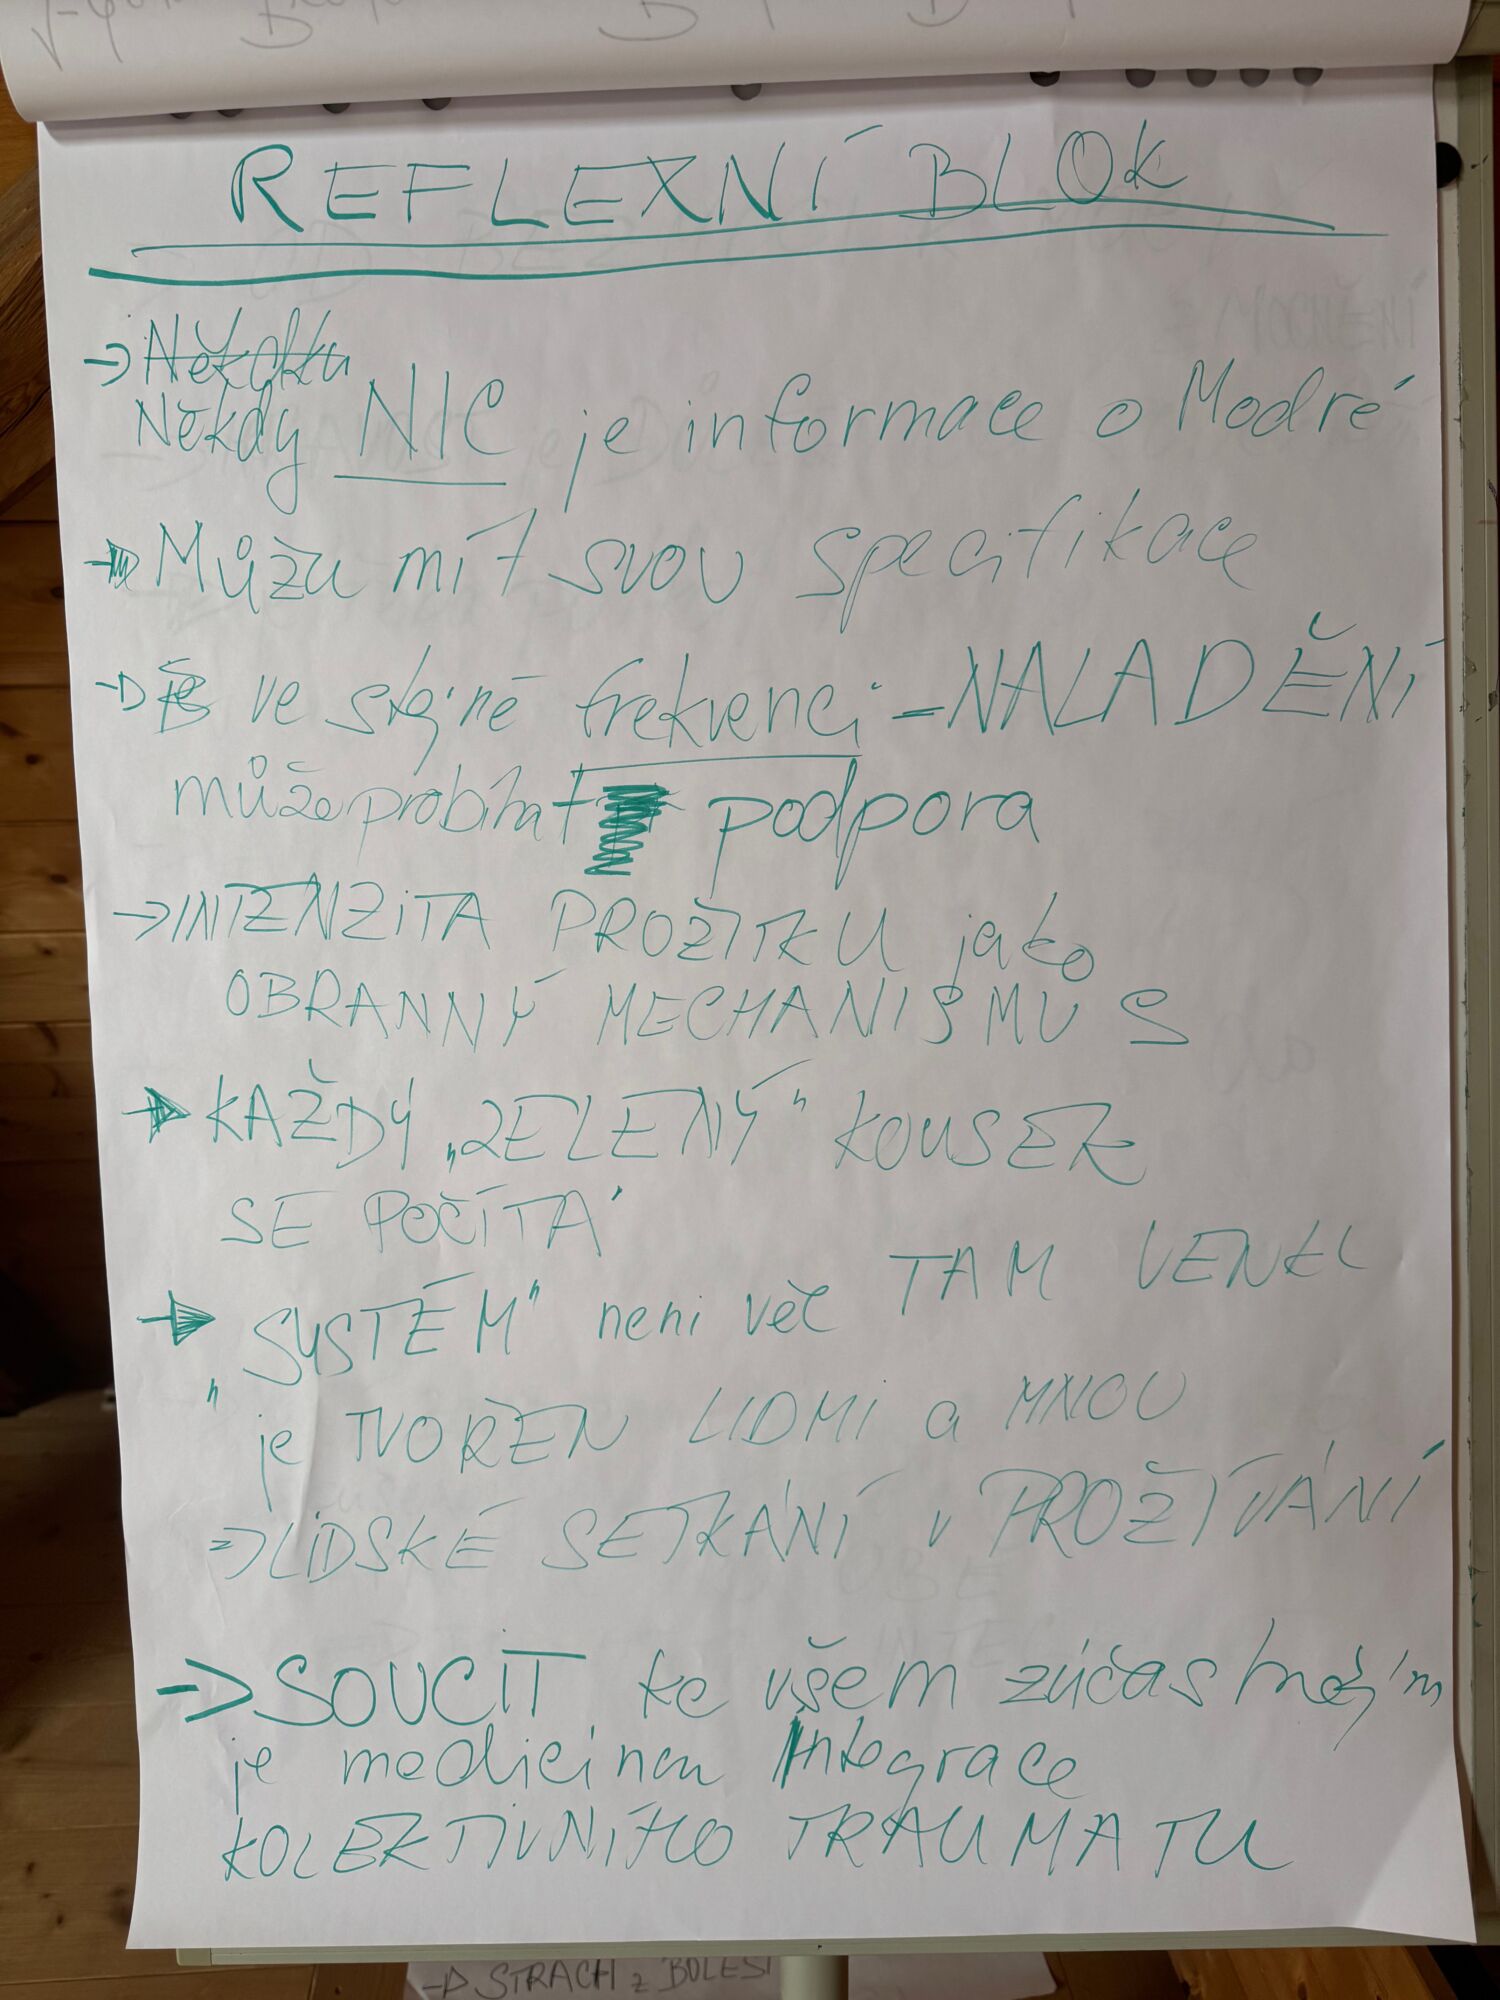 REFLEXNÍ BLOK
→ Někdy NIC je informace o Modré
→ Můžu mít svou specifikace
→ ve stejné frekvenci - NALADĚNÍ
může probíhat podpora
→ INTENZITA PROŽITKU jako
OBRANNÝ MECHANISMUS
→ KAŽDÝ „ZELENÝ" KOUSEK
SE POČÍTÁ
→ „SYSTÉM" neni věc TAM VENKU
je TVOŘEN LIDMI a MNOU
⇒ LIDSKÉ SETKÁNÍ v PROŽÍVÁNÍ
→ SOUCIT ke všem zúčastněným
je medicinou Integrace
KOLEKTIVNÍHO TRAUMATU
→ STRACH z BOLESI